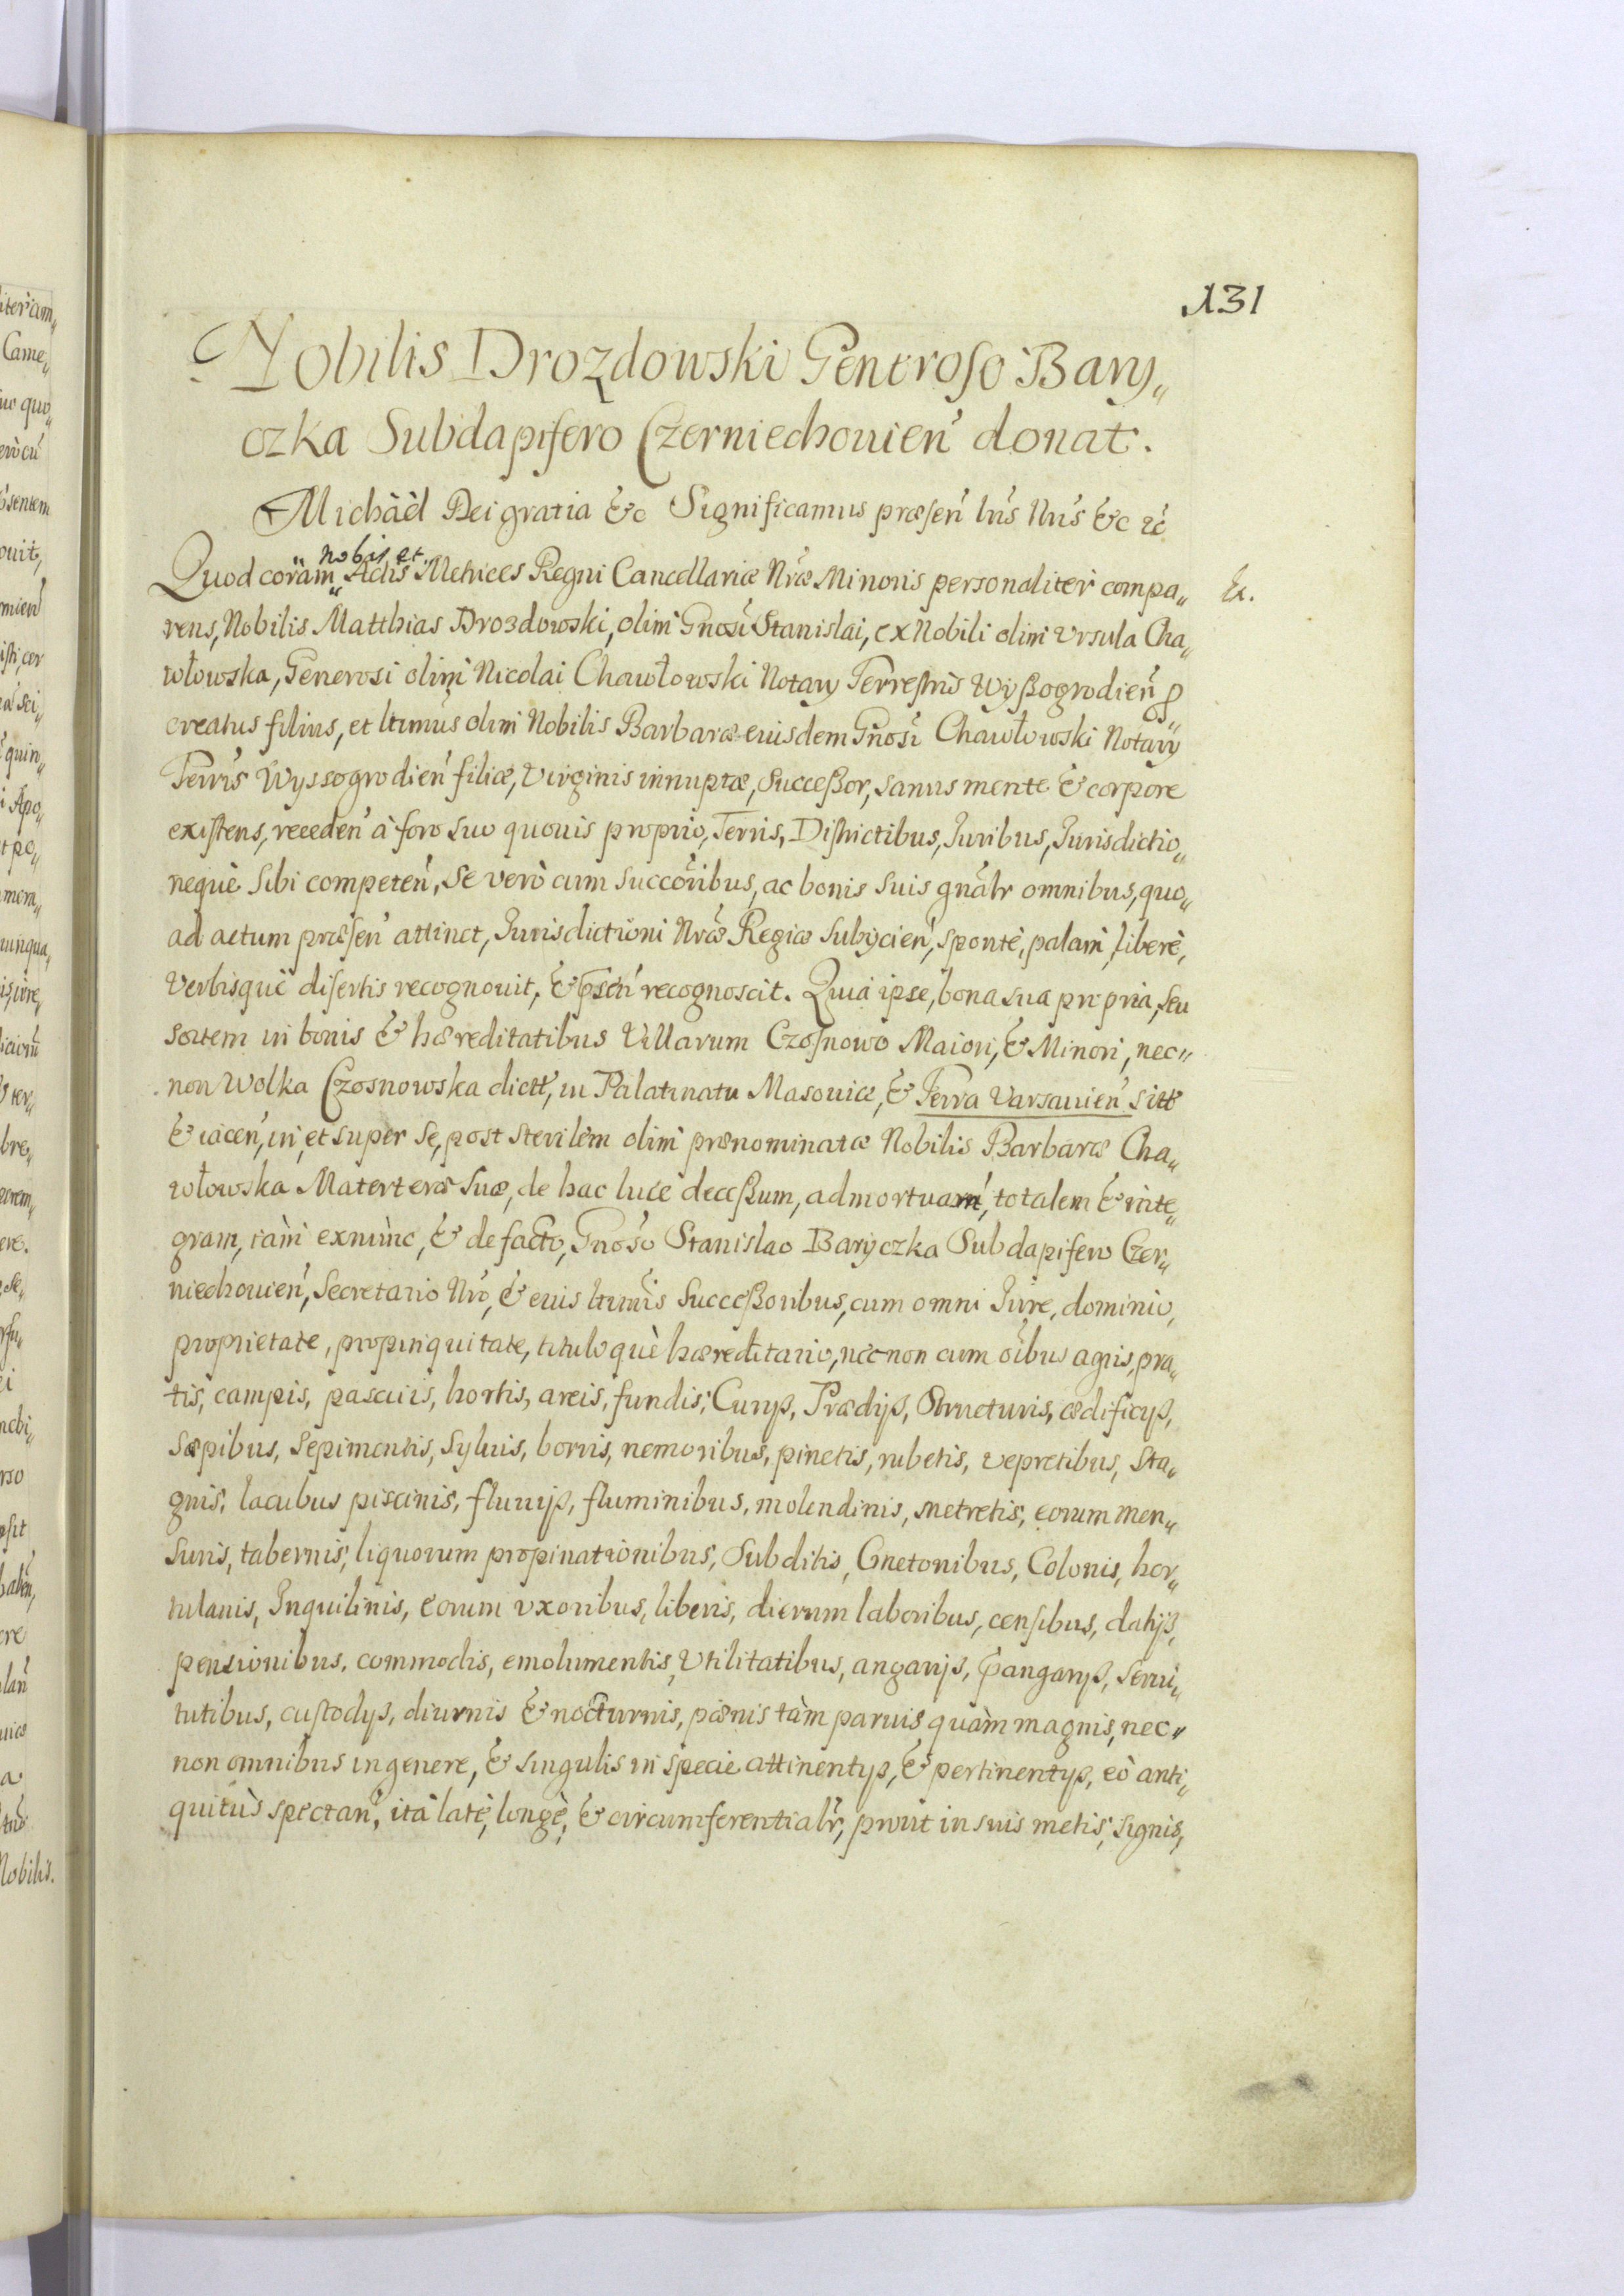 131
Nobilis Drozdowski Generoso Bary„
czka Subdapifero Czerniechouień donat.
Michäel Dei gratia &c Significamus præseń lrīs nrīs &c zć
nobis et
Quod coràm Actis Metrices Regni Cancellariæ Nræ Minoris personaliter compa„
rens, Nobilis Matthias Drozdowski, olim Gnosi Stanislai, ex Nobili olim Vrsula Cha„
włowska, Generosi olim Nicolai Chawłowski Notarÿ Terrestris Wyßogrodień
creatus filius, et ltimus olim Nobilis Barbaræ eiusdem Gnosi Chawłowski Notarÿ
Terris Wyssogrodień filiæ, Virginis innuptæ, Succeßor, sanus mente & corpore
existens, recedeń à foro suo quouis proprio, Terris, Districtibus, Iuribus, Iurisdictio„
neque sibi competeń, Se verò cum succoribus, ac bonis suis gnalr omnibus, quo„
ad actum præseń attinet, Iurisdictioni Nræ Regiæ subÿcień, spontè, palam, liberè,
Verbisquè disertis recognouit, & pseń recognoscit. Quia ipse, bona sua propria, seu
sortem in bonis & hæreditatibus Villarum Czosnowo Maiori, & Minori, nec„
non Wolka Czosnowska dictt, in Palatinatu Masouiæ, & Terra Varsauień sitt
& iaceń, in, et super se, post sterilem olim prænominatæ Nobilis Barbaræ Cha„
włowska Materteræ suæ, de hac luce deceßum, admortuam, totalem & inte„
gram, iàm exnunc, & de facto, Gnoso Stanislao Baryczka Subdapifero Czer„
niechouień, Secretario Nro, & eius ltimis Succeßoribus, cum omni Iure, dominio,
proprietate, propinquitate, tituloquè hæreditario, nec non cum oibus agris, pra„
tis, campis, pascuis, hortis, areis, fundis, Curÿs, Prædijs, Structuris, ædificÿs,
Sæpibus, Sepimentis, Syluis, borris, nemoribus, pinetis, rubetis, vepretibus, Sta„
gnis, lacubus piscinis, fluuijs, fluminibus, molendinis, metretis, eorum men„
suris, tabernis, liquorum propinationibus, Subditis, Cmetonibus, Colonis, hor„
tulanis, Inquilinis, eorum vxoribus, liberis, dierum laboribus, censibus, datijs,
pensionibus, commodis, emolumentis, Vtilitatibus, angarijs, pangarÿs, Serui„
tutibus, custodÿs, diurnis & nocturnis, pænis tàm paruis quàm magnis, nec„
non omnibus in genere, & singulis in specie attinentÿs, & pertinentÿs, eò anti„
quitùs spectań, ità latè, longè, & circumferentialr, prout in suis metis, signis,